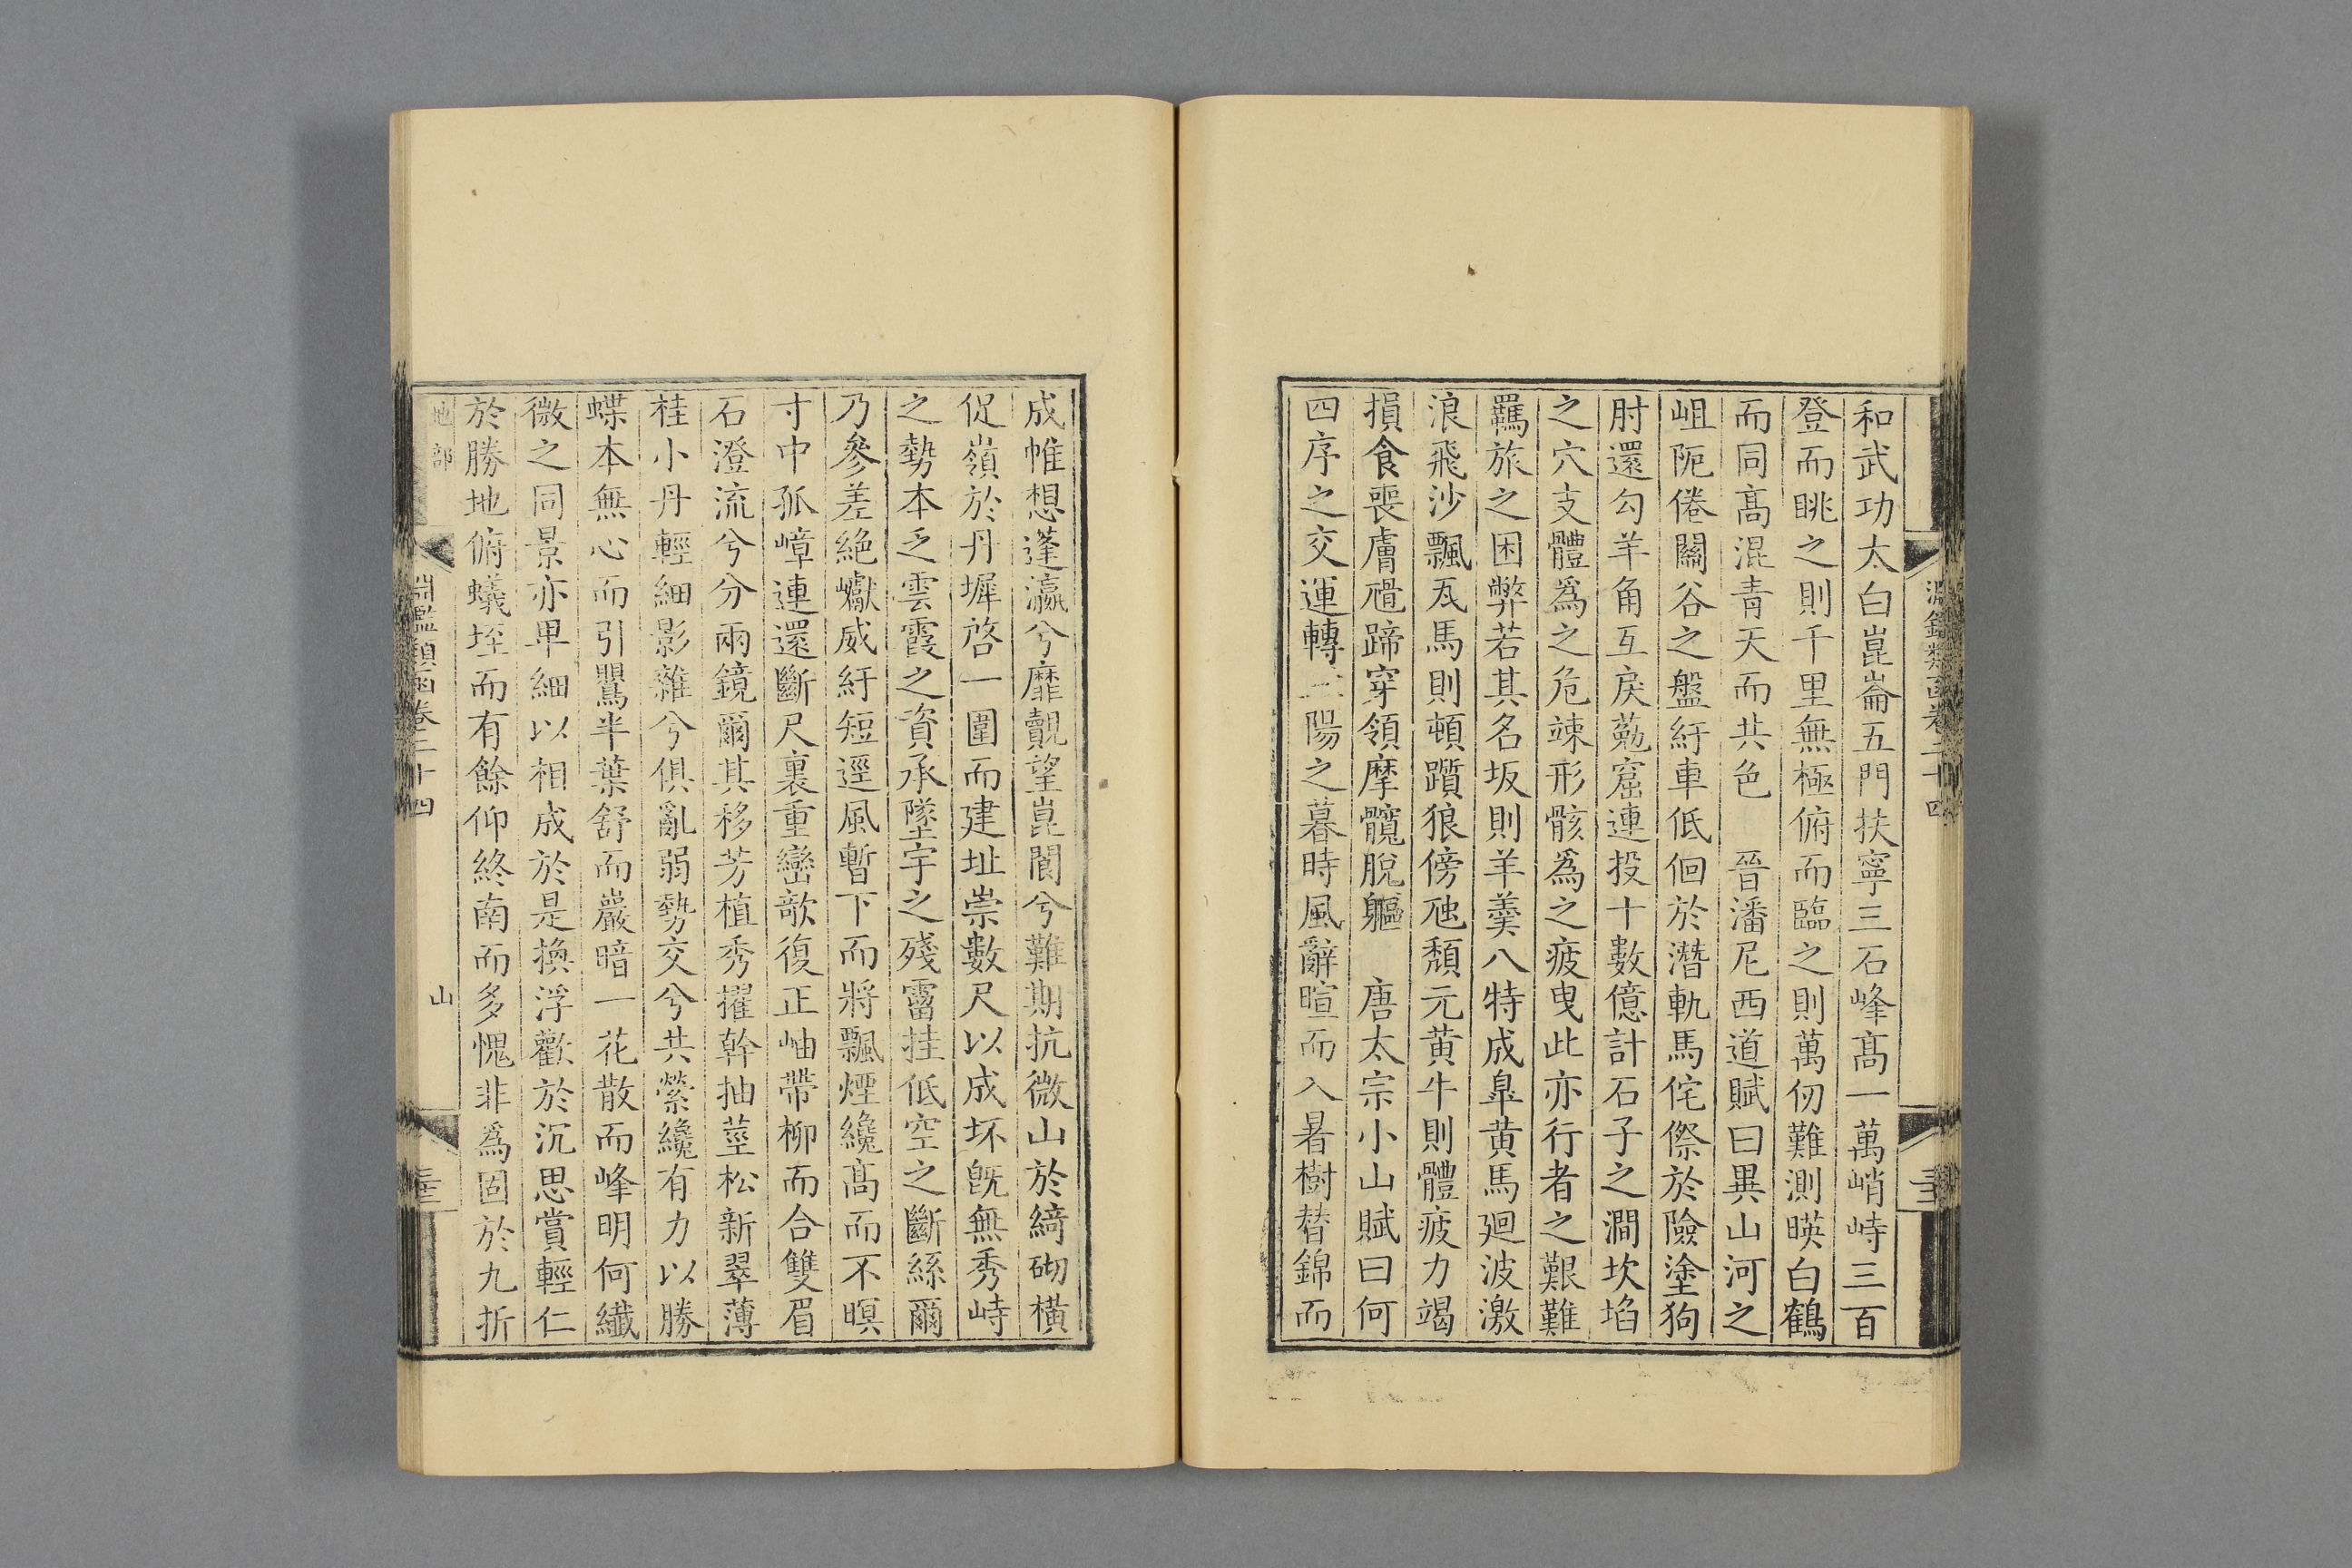 和武功太白崑崙五門扶寧三石峰髙一萬峭峙三百
登而眺之則千里無極俯而臨之則萬仞難測暎白鶴
而同髙混青天而共色　晉潘尼西道賦曰異山河之
岨阨倦關谷之盤紆車低佪於潛軌馬侘傺於險塗狗
肘還勾羊角互戾蒐窟連投十數億計石子之澗坎埳
之穴支體爲之危竦形骸爲之疲曳此亦行者之艱難
羈旅之困弊若其名坂則羊羹八特成皐黄馬廻波激
浪飛沙飄瓦馬則頓躓狼傍虺頽元黄牛則體疲力竭
損食喪膚禍蹄穿領摩髖脫軀　唐太宗小山賦曰何
四序之交運轉三陽之暮時風辭暄而入暑樹替錦而
淵鑑類函卷二十四
成帷想蓬瀛兮靡覿望崑閬兮難期抗微山於綺砌橫
促嶺於丹墀啓一圍而建址崇數尺以成坏旣無秀峙
之勢本乏雲霞之資承墜宇之殘霤挂低空之斷絲爾
乃參差絕巘威紆短逕風暫下而將飄煙纔髙而不暝
寸中孤嶂連還斷尺裏重巒欹復正岫帶柳而合雙眉
石澄流兮分兩鏡爾其移芳植秀擢幹抽莖松新翠薄
桂小丹輕細影雜兮俱亂弱勢交兮共縈纔有力以勝
蝶本無心而引鸎半葉舒而巖暗一花散而峰明何纖
微之同景亦卑細以相成於是換浮歡於沉思賞輕仁
於勝地俯蟻垤而有餘仰終南而多愧非爲固於九折
地部
淵鑑類函卷二十四
山